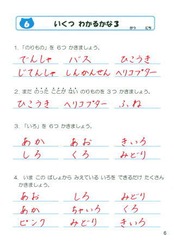 6 いくつ わかるかな 3
1. 「のりもの」を 6つ かきましょう。
でんしゃ バス ひこうき
じてんしゃ しんかんせん ヘリコプター
2. まだ のったことが ない のりもの
ひこうき ヘリコプター ふね
3. 「いろ」を 6つ かきましょう。
あか あお きいろ
しろ くろ みどり
4. いま この ばしょから みえている いろを できるだけ たくさん かきましょう。
あお しろ みどり
あか ちゃいろ くろ
ピンク みどり きいろ
6